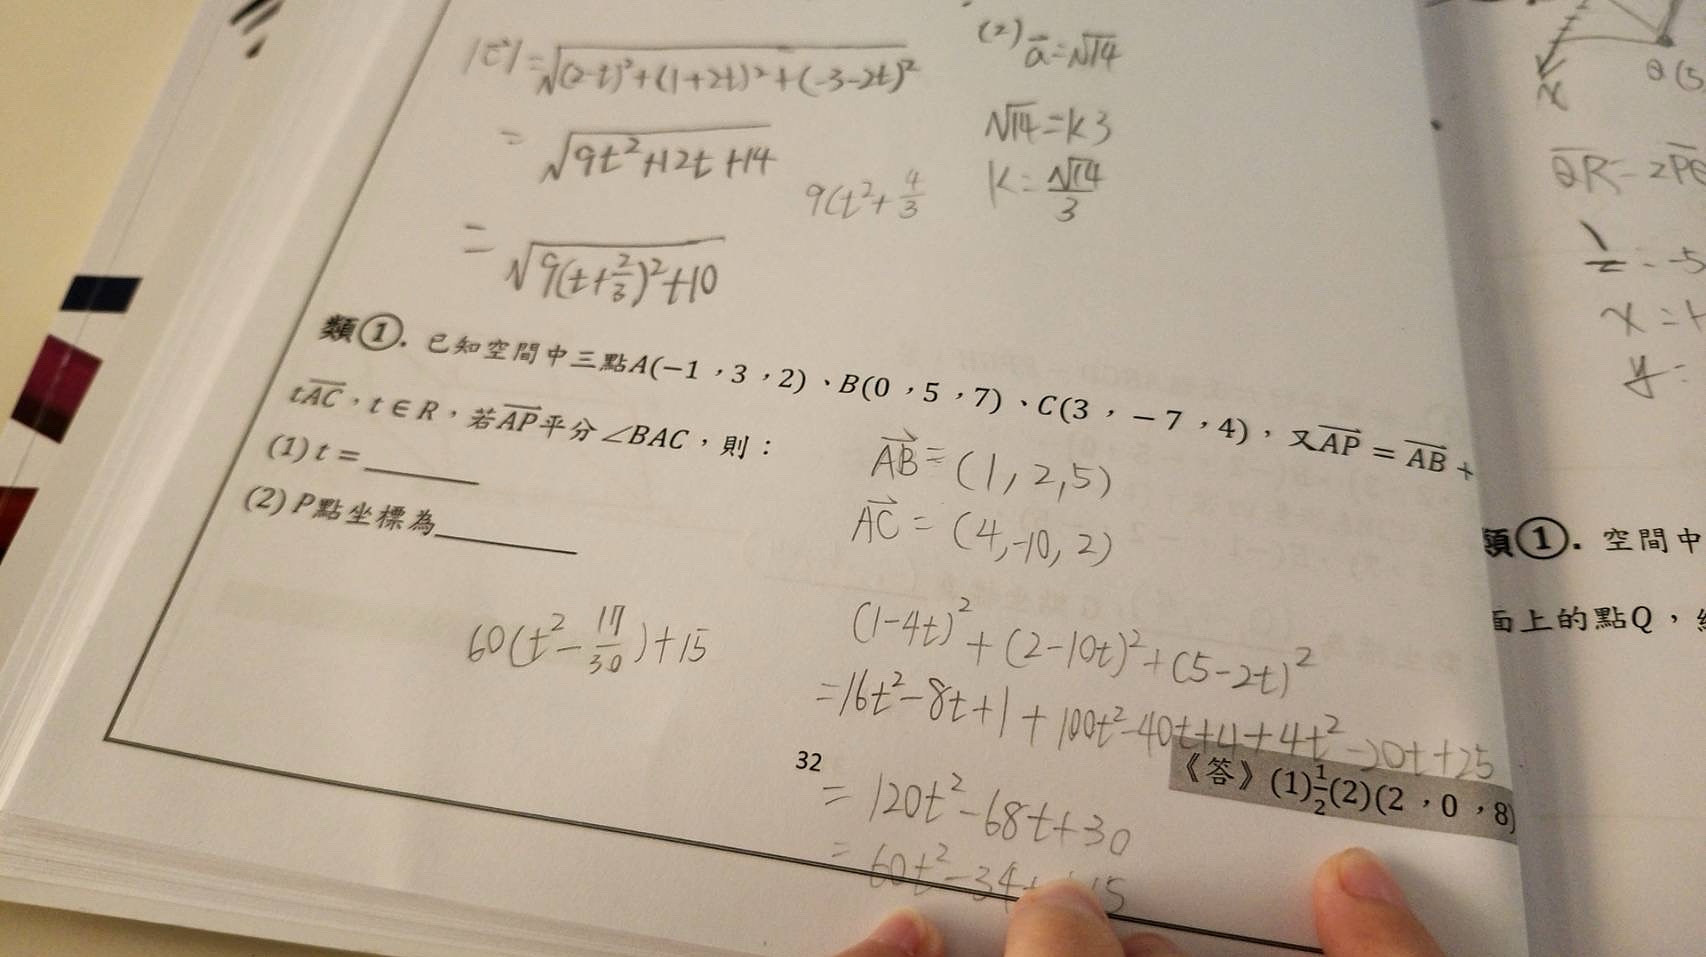 |c⃗| = √(2-t)²+(1+2t)²+(-3-2t)²
= √9t²+12t+14
9(t²+4/3
= √9(t+2/3)²+10
(2) a⃗=√14
√14=k3
k=√14/3
類①. 已知空間中三點A(−1,3,2)、B(0,5,7)、C(3,−7,4),又AP = AB +
tAC,t∈R,若AP平分∠BAC,則:
(1) t =
(2) P點坐標為
AB⃗ = (1, 2, 5)
AC⃗ = (4, -10, 2)
60(t²-17/30)+15
(1-4t)²+(2-10t)²+(5-2t)²
=16t²-8t+1+100t²-40t+4+4t²-20t+25
= 120t²-68t+30
= 60t²-34t+15
32
《答》(1)1/2(2)(2,0,8)
x
Q(5
QR=2PQ
=-5
x=
y=
類①. 空間中
面上的點Q,